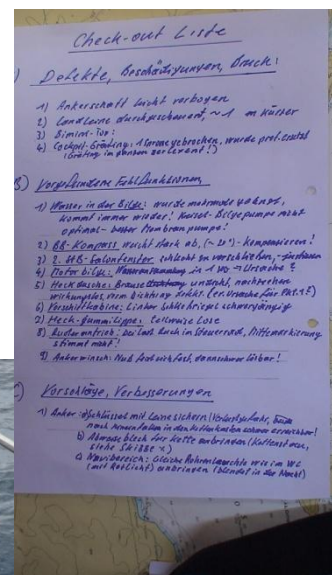 Check-out Liste
Defekte, Beschädigungen, Bruch:
1) Ankerschaft leicht verbogen
2) Landleine durchgescheuert, ~ 1 m kürzer
3) Bimini-Tor:
4) Cockpit-Gräting: 1 gebrochen, wurde prof. ersetzt
(Gräting im ganzen zerlemt!)
B) Vorgefundene Fehlfunktionen
1) Wasser in der Bilge: wurde mehrmals gelenzt,
kommt immer wieder! Kiesel-Bilgepumpe nicht
optimal - besser Membranpumpe!
2) BB-Kompass weicht stark ab, (~ 20°) - kompensieren!
3) 2. StB-Salonfenster schlecht zu verschließen,
4) Motorbilge: in 1 Wo → Ursache?
5) Heckdusche: Brause undicht, nachtropfen
wirkungslos, wenn Dichtung defekt. (ev. Ursache für Pkt. 4?)
6) Vorschiffkabine: Linker schwergängig
7) Heck-Gummilippe: Teilweise Lose
8) Ruderantrieb: bei Last Ruck im Steuerrad, Mittemarkierung
stimmt nicht!
9) Ankerwinsch: Nuß frisst sich fest, dann schwer lösbar!
C) Vorschläge, Verbesserungen
1) Anker: a) Schlüssel mit Leine sichern (Verlustgefahr,
nach hinunterfallen in den Kettenkasten schwer erreichbar!
b) Abweisblech für Kette anbringen (Kettenstau,
siehe Skizze 2)
c) Navibereich: Gleiche Röhrenleuchte wie im WC
(mit Rotlicht) anbringen (blendet in der Nacht)